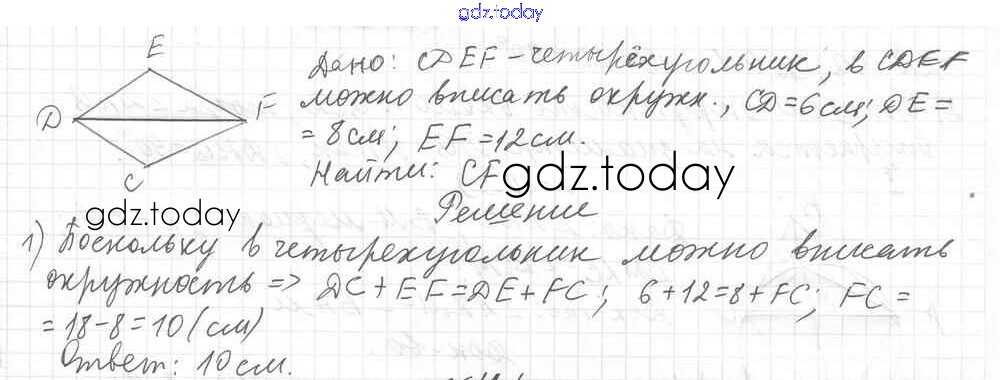 gdz.today
E
D
F
C
Дано: CDEF – четырёхугольник, в CDEF
можно вписать окружн., CD=6см; DE=
=8см; EF=12см.
Найти: CF
gdz.today
gdz.today
Решение
1) Поскольку в четырехугольник можно вписать
окружность => DC+EF=DE+FC; 6+12=8+FC; FC=
=18-8=10(см)
Ответ: 10см.